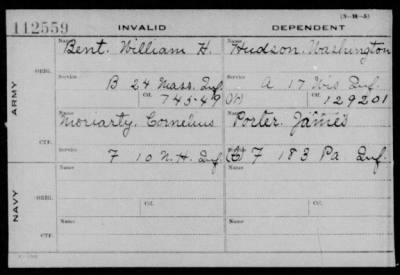 (3-H-5)
112559 INVALID DEPENDENT
Name Name
Bent. William H. Hudson. Washington
ORIG.
Service Service
B 24 Mass. Inf. A 17 Wis Inf.
Ctf. 743-49 Ctf. 129201
ARMY
Name Name
Moriarty. Cornelius Porter. James
CTF.
Service Service
F 10 N.H. Inf. F 183 Pa Inf.
Name Name
ORIG.
Ctf. Ctf.
NAVY
Name Name
CTF.